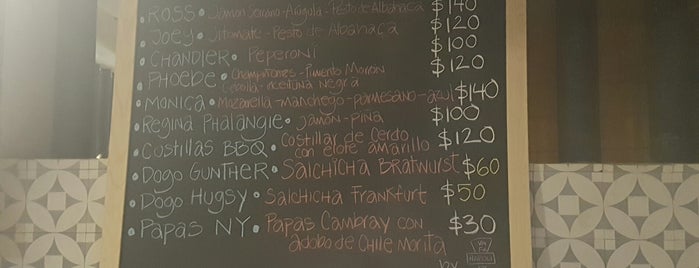 • ROSS • Jamón Serrano - Arúgula - Pesto de Albahaca $140
• JOEY • Jitomate - Pesto de Albahaca $120
• CHANDLER • Peperoni $100
• PHOEBE • Champiñones - Pimiento Morrón $120
Cebolla - Aceituna Negra
• MONICA • Mozarella - manchego - parmesano - azul $140
• REGINA PHALANGIE • Jamón - piña $100
• COSTILLAS BBQ • Costillar de Cerdo $120
con elote amarillo
• DOGO GUNTHER • SALCHICHA BRATWURST $60
• DOGO HUGSY • SALCHICHA FRANKFURT $50
• PAPAS NY • PAPAS CAMBRAY CON $30
adobo de CHILE Morita